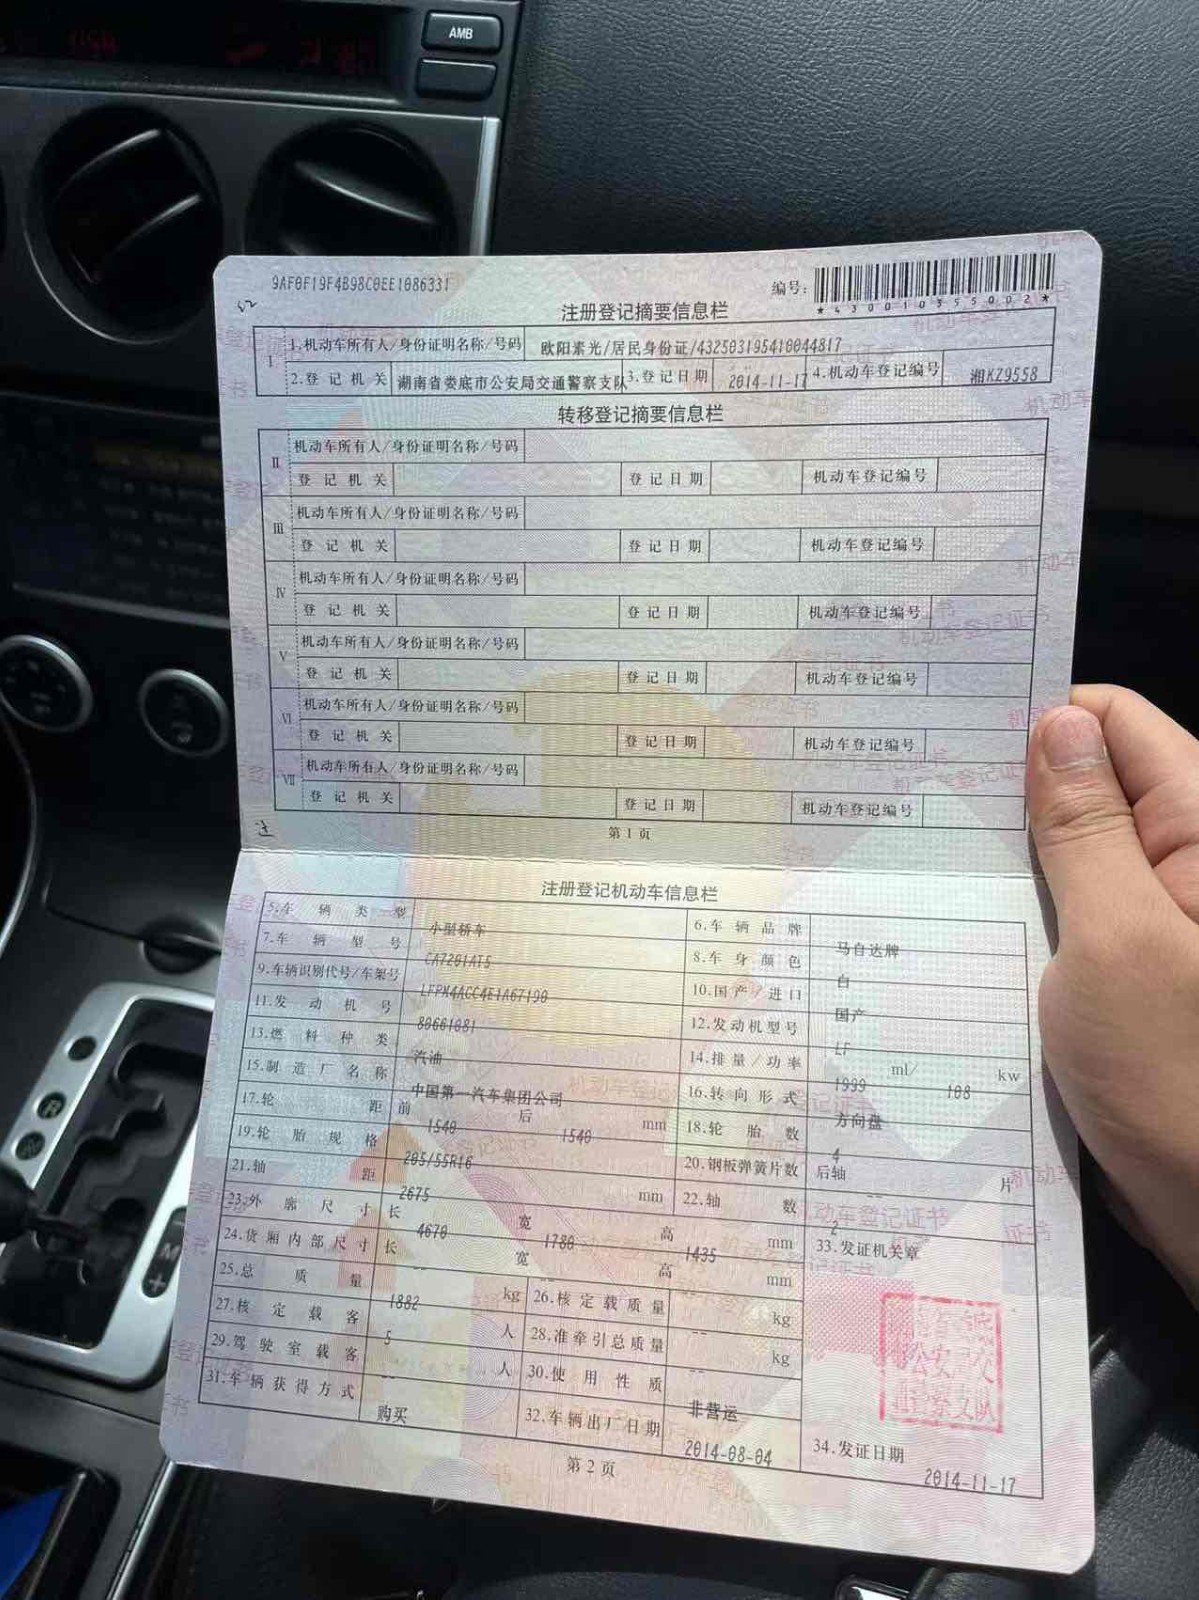 AMB
9AF0F19F4B98C0EE1086331
编号:
*430010355002*
注册登记摘要信息栏
I
1.机动车所有人/身份证明名称/号码 欧阳素光/居民身份证/432503195410044817
2.登记机关 湖南省娄底市公安局交通警察支队 3.登记日期 2014-11-17 4.机动车登记编号 湘KZ9558
转移登记摘要信息栏
II 机动车所有人/身份证明名称/号码
登记机关 登记日期 机动车登记编号
III 机动车所有人/身份证明名称/号码
登记机关 登记日期 机动车登记编号
IV 机动车所有人/身份证明名称/号码
登记机关 登记日期 机动车登记编号
V 机动车所有人/身份证明名称/号码
登记机关 登记日期 机动车登记编号
VI 机动车所有人/身份证明名称/号码
登记机关 登记日期 机动车登记编号
VII 机动车所有人/身份证明名称/号码
登记机关 登记日期 机动车登记编号
第1页
注册登记机动车信息栏
5.车辆类型 小型轿车 6.车辆品牌 马自达牌
7.车辆型号 CA7201AT5 8.车身颜色 白
9.车辆识别代号/车架号 LFPM4ACC4E1A67190 10.国产/进口 国产
11.发动机号 80661081 12.发动机型号 LF
13.燃料种类 汽油 14.排量/功率 1999 ml/ 108 kw
15.制造厂名称 中国第一汽车集团公司 16.转向形式 方向盘
17.轮距 前 1540 后 1540 mm 18.轮胎数 4
19.轮胎规格 205/55R16 20.钢板弹簧片数 后轴 -- 片
21.轴距 2675 mm 22.轴数 2
23.外廓尺寸 长 4670 宽 1780 高 1435 mm 33.发证机关章
24.货厢内部尺寸 长 -- 宽 -- 高 mm
25.总质量 1882 kg 26.核定载质量 -- kg
27.核定载客 5 人 28.准牵引总质量 -- kg
29.驾驶室载客 -- 人 30.使用性质 非营运
31.车辆获得方式 购买 32.车辆出厂日期 2014-08-04 34.发证日期 2014-11-17
第2页
R
N
M
+